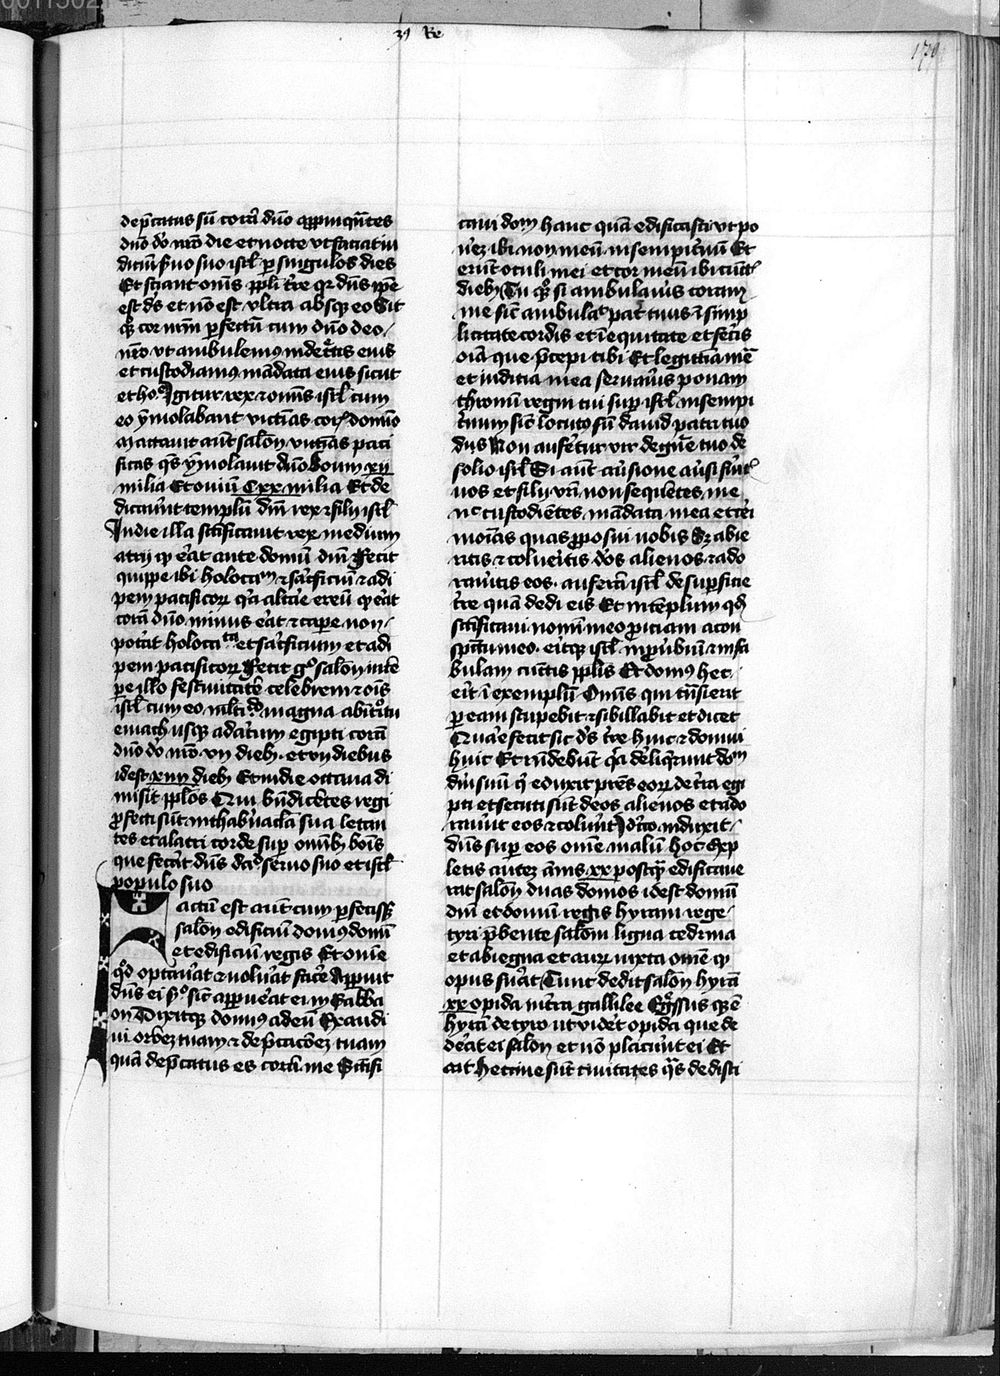 3ꝯ Re
170
dep̄catus sū corā dn̄o appinqn̄tes
dn̄o do nr̄o die et nocte ut faciat iu
diciū ẜuo suo isrl̄ ꝑ singulos dies
Et sciant om̄s ppl̄i tr̄e qr dn̄s ip̄e
est ds̄ et nō est ultra absqꝫ eo Sit
qꝫ cor nr̄m ꝑfectū cum dn̄o deo
nr̄o ut ambulemꝯ in dec̄tis eius
et custodiamꝯ mādata eius sicut
et hoᵉ Igitur rex ⁊ om̄s isrl̄ cum
eo ymolabant victīas corā domīo
Mactauit aūt salōn victīas paci
ficas qᵃs ymolauit dn̄o boum xxii
milia Et ouiū Cxx milia Et de
dicauīt templū dn̄i rex ⁊ filii isrl̄
In die illa sctificauit rex medium
atrii qͥ erat ante domū dn̄i Fecit
quippe ibi holoctᵐ ⁊ sac̄ficiū ⁊ adi
pem pacificoꝝ qᵃ altāe ereū qͥ erat
corā dn̄o minus erat ⁊ capere non
potāt holoctᵗᵃ et sac̄ficium et adi
pem pacificoꝝ Fecit gͦ salōn in tē
pe illo festiuitatē celebrem ⁊ oīs
isrl̄ cum eo mlti.ᵈᵒ magna ab int͛oitu
emach usqꝫ ad ac̄um egipti corā
dn̄o do nr̄o vii dieb; et vii diebus
id est xiiii dieb; Et in die octaua di
misit ppl̄os Qui bn̄dicētes regi
ꝓfecti sūt in thab̄nacl̄a sua letan
tes et alacri corde suꝑ om̄ib; bonis
que fecāt dn̄s dd̄ seruo suo et isrl̄
populo suo
Factū est aūt cum ꝑfecissꝫ
salōn edificiū domus domī
et edificiū regis Et om̄e
qd̄ optauāt ⁊ uoluāt facē Apparuit
dn̄s ei sͦ sic̄ apparūat ei in Gaba
on Dixitqꝫ dominꝯ ad eū Exaudi
ui orōez tuam ⁊ dep̄cacōez tuam
quā dep̄catus es corā me Sctifi
caui dom hanc quā edificasti ut po
nēz ibi nomen meū in sempit̄nū Et
erūt oculi mei et cor meū ibi cūct͛
dieb; Tu qꝫ si ambulaūis coram
me sic̄ ambulaᵗ pat̄ tuus ī simp
licitate cordis et ī equitate et fec̄is
oīa que p̄cepi tibi Et legittima mea
et iudicia mea seruaūis ponam
thronū regni tui suꝑ isrl̄ in sempi
t̄num sic̄ locutꝯ sū dauid patri tuo
dicēs Non aufetur vir de genē tuo de
solio isrl̄ Si aūt aūsione aūsi fūit͛
uos et filii vr̄i non sequētes me
nᶜ custodiētes mādata mea et cēi
monias quas ꝓposui uobis Sꝫ abie
ritis ⁊ colueritis dōs alienos ⁊ ado
rauitis eos. auferā isrl̄ de suꝑficie
tr̄e quā dedi eis Et templum qd̄
sctificaui nomīi meo ꝓiciam a con
spectu meo. eritqꝫ isrl̄ in ꝓuerbiū ⁊ in fa
bulam cunctis ppl̄is Et domꝯ hec
erit ī exemplū Omīs qui trn̄sierit
ꝑ eam stupebit ⁊ sibillabit et dicet
Quare fecit sic ds̄ tr̄e huic ⁊ domui
huic Et rn̄debūt qᵃ deliqūnt domᵐ
dm̄ suū qͥ eduxit pr̄es eoꝝ de tr̄a egi
pti et secuti sūt deos alienos et ado
rauīt eos ⁊ colunt Idcͦo induxit
dn̄s suꝑ eos om̄e malū hoc Exp
letis autez ān̄is xx postqͣ edificaue
rat salōn duas domos id est domū
dn̄i et domū regis hyram rege
tyri p̄bente salōni ligna cedrina
et abiegna et auꝝ iuxta om̄e qͥ
opus fuāt Tunc dedit salōn hyrā
xx opida in tr̄a gallilee Egressus qꝫ ē
hyrā de tyro ut vidēt opida que de
dēat ei salōn et nō placuīt ei Et
ait heccine sūt ciuitates qᵃs dedisti